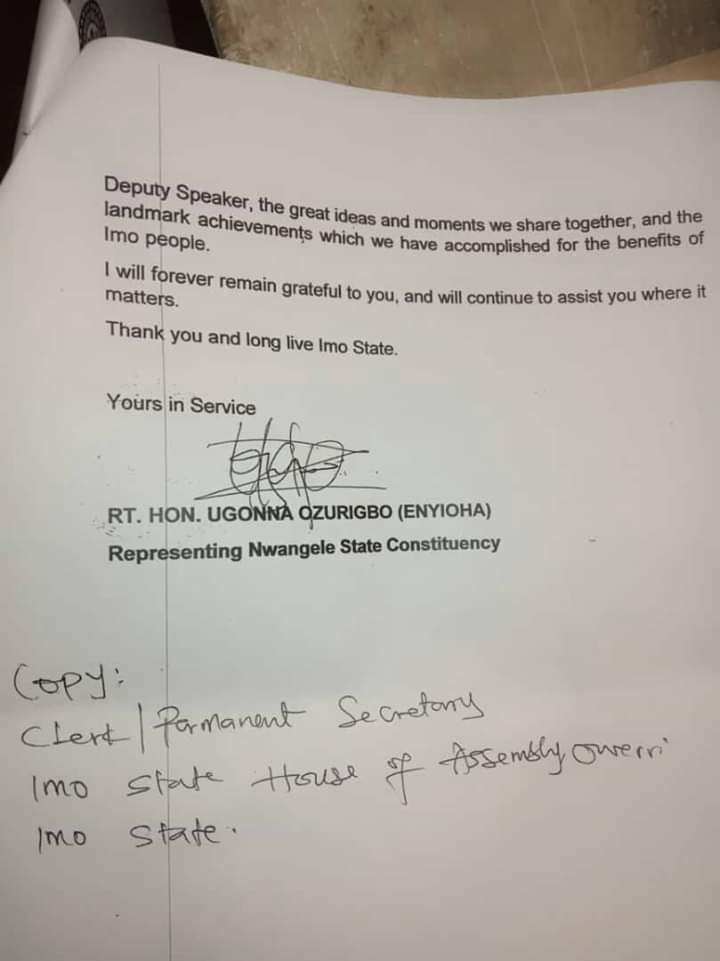 Deputy Speaker, the great ideas and moments we share together, and the
landmark achievements which we have accomplished for the benefits of
Imo people.
I will forever remain grateful to you, and will continue to assist you where it
matters.
Thank you and long live Imo State.
Yours in Service
RT. HON. UGONNA OZURIGBO (ENYIOHA)
Representing Nwangele State Constituency
Copy:
Clerk/Permanent Secretary
Imo State House of Assembly Owerri
Imo State.